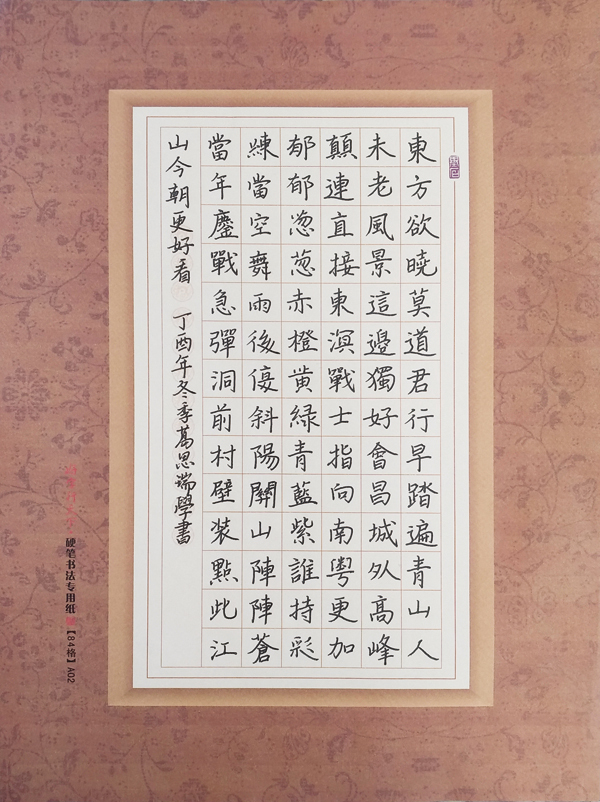 東方欲曉莫道君行早踏遍青山人
未老風景這邊獨好會昌城外高峰
顛連直接東溟戰士指向南粵更加
郁郁葱葱赤橙黄緑青藍紫誰持彩
練當空舞雨後復斜陽關山陣陣蒼
當年鏖戰急彈洞前村壁装點此江
山今朝更好看 丁酉年冬季葛思端學書
硬笔书法专用纸【84格】A02